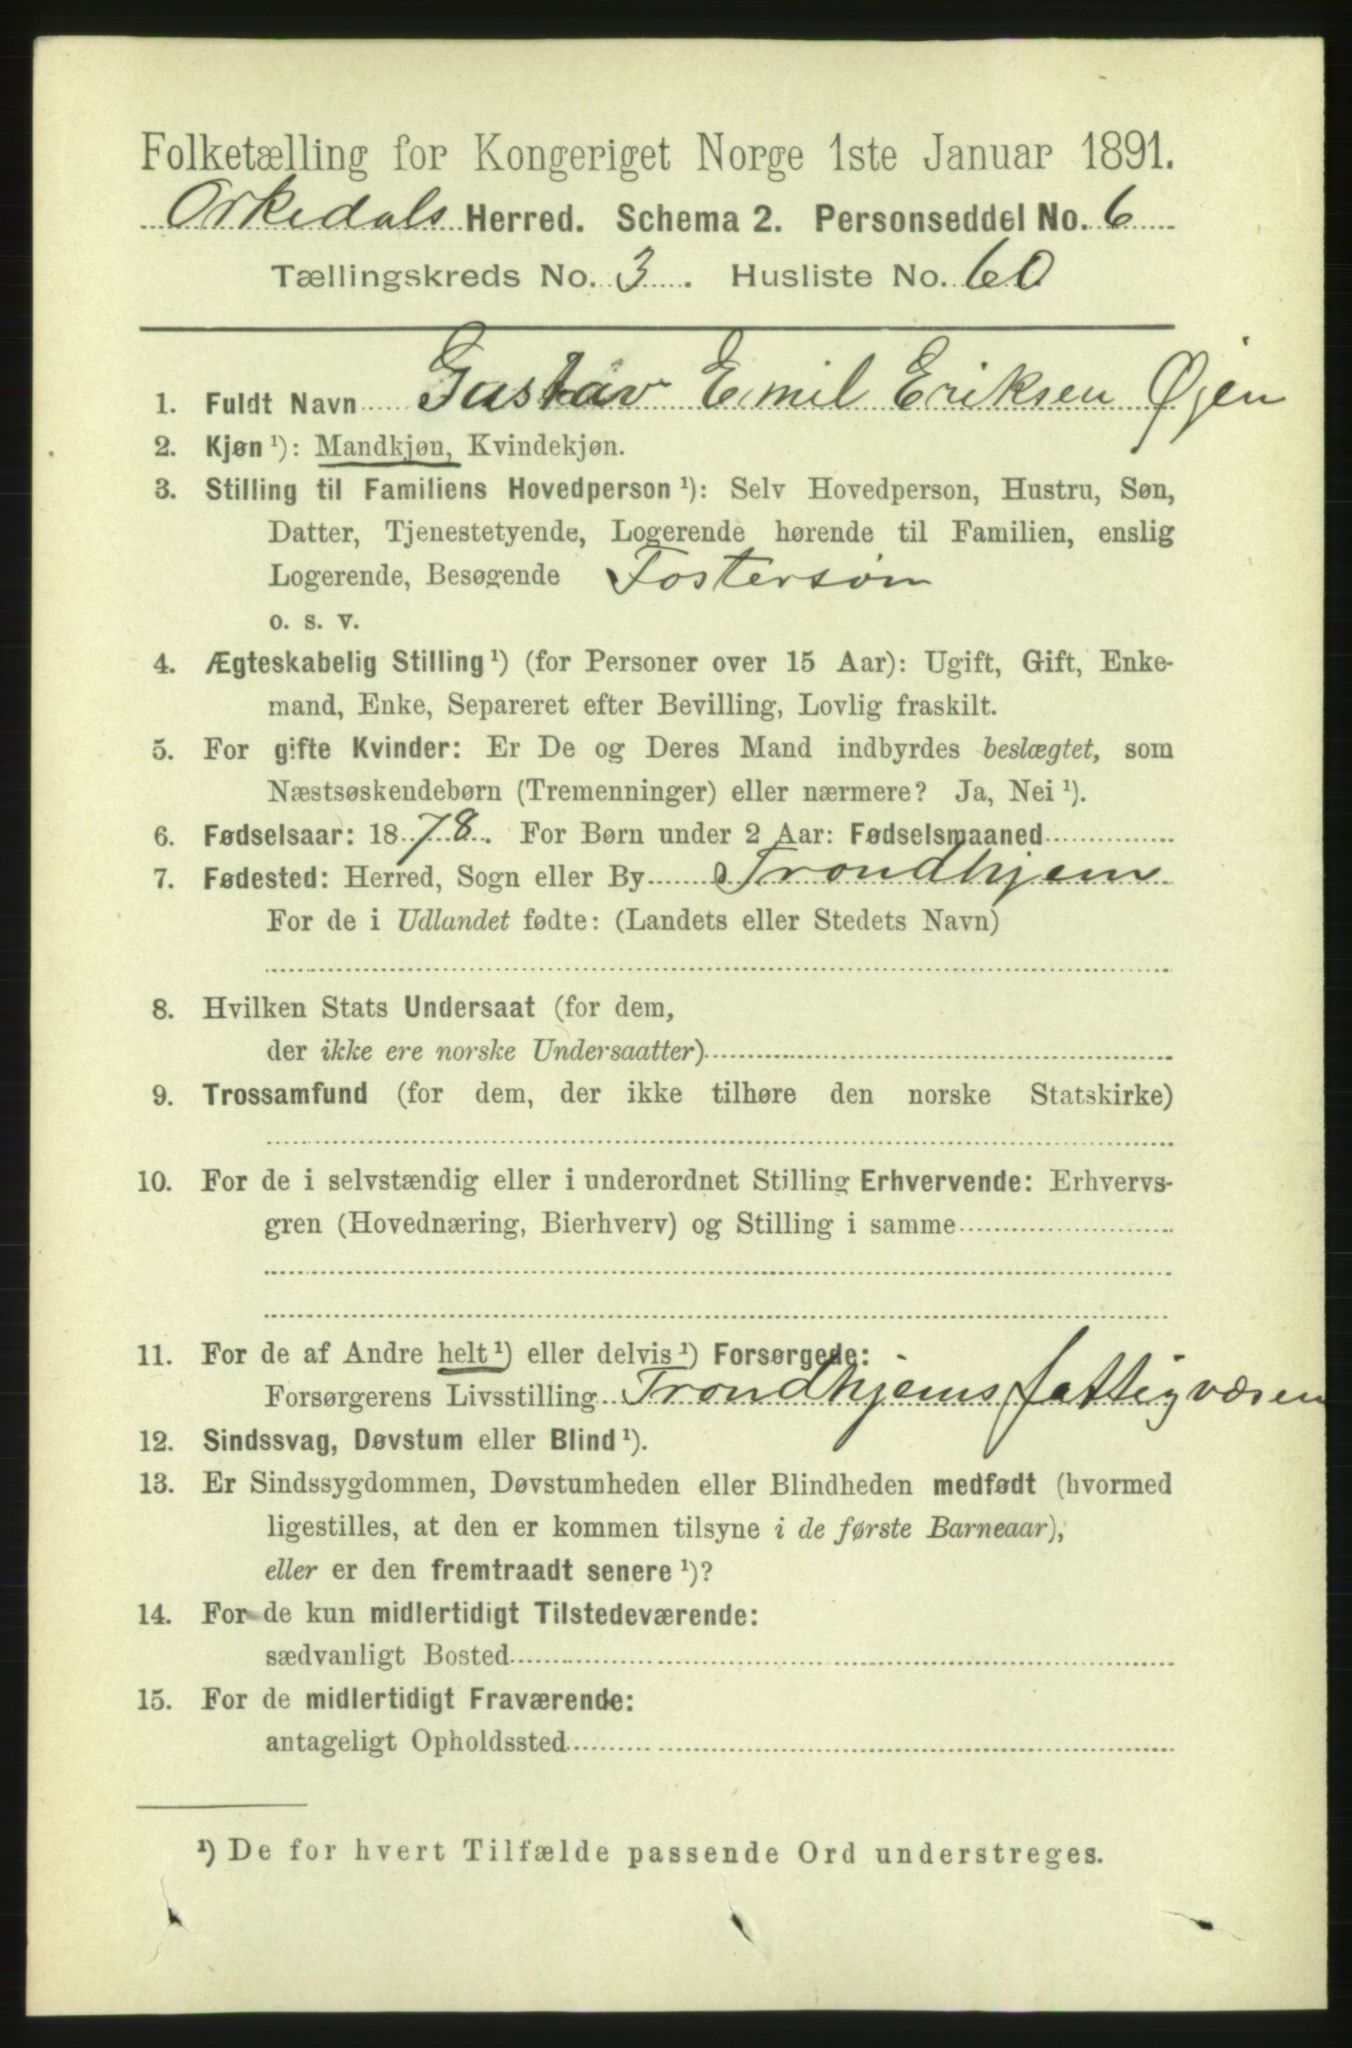 Folketælling for Kongeriget Norge 1ste Januar 1891.
Orkedals Herred. Schema 2. Personseddel No. 6
Tællingskreds No. 3. Husliste No. 60
1. Fuldt Navn Gustav Emil Eriksen Øjen
2. Kjøn ¹): Mandkjøn, Kvindekjøn.
3. Stilling til Familiens Hovedperson ¹): Selv Hovedperson, Hustru, Søn,
Datter, Tjenestetyende, Logerende hørende til Familien, enslig
Logerende, Besøgende Fostersøn
o. s. v.
4. Ægteskabelig Stilling ¹) (for Personer over 15 Aar): Ugift, Gift, Enke-
mand, Enke, Separeret efter Bevilling, Lovlig fraskilt.
5. For gifte Kvinder: Er De og Deres Mand indbyrdes beslægtet, som
Næstsøskendebørn (Tremenninger) eller nærmere? Ja, Nei ¹).
6. Fødselsaar: 1878. For Børn under 2 Aar: Fødselsmaaned
7. Fødested: Herred, Sogn eller By Trondhjem
For de i Udlandet fødte: (Landets eller Stedets Navn)
8. Hvilken Stats Undersaat (for dem,
der ikke ere norske Undersaatter)
9. Trossamfund (for dem, der ikke tilhøre den norske Statskirke)
10. For de i selvstændig eller i underordnet Stilling Erhvervende: Erhvervs-
gren (Hovednæring, Bierhverv) og Stilling i samme
11. For de af Andre helt ¹) eller delvis ¹) Forsørgede:
Forsørgerens Livsstilling Trondhjems fattigvæsen
12. Sindssvag, Døvstum eller Blind ¹).
13. Er Sindssygdommen, Døvstumheden eller Blindheden medfødt (hvormed
ligestilles, at den er kommen tilsyne i de første Barneaar),
eller er den fremtraadt senere ¹)?
14. For de kun midlertidigt Tilstedeværende:
sædvanligt Bosted
15. For de midlertidigt Fraværende:
antageligt Opholdssted
¹) De for hvert Tilfælde passende Ord understreges.